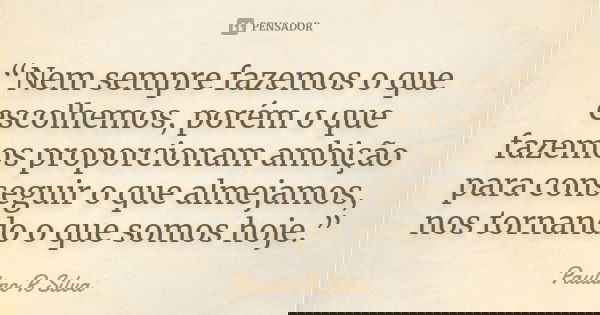 PENSADOR
“Nem sempre fazemos o que
escolhemos, porém o que
fazemos proporcionam ambição
para conseguir o que almejamos,
nos tornando o que somos hoje.”
Paulino R Silva